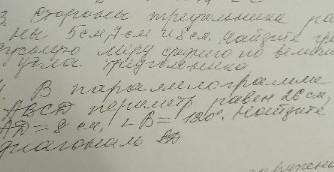 3. Стороны треугольника рав
ны 5 см, 7 см и 8 см. Найдите гра
дусную меру среднего по величи
угла треугольника
4. В параллелограмме
ABCD периметр равен 26 см,
AD = 8 см, ∠B = 120°. Найдите
диагональ BD